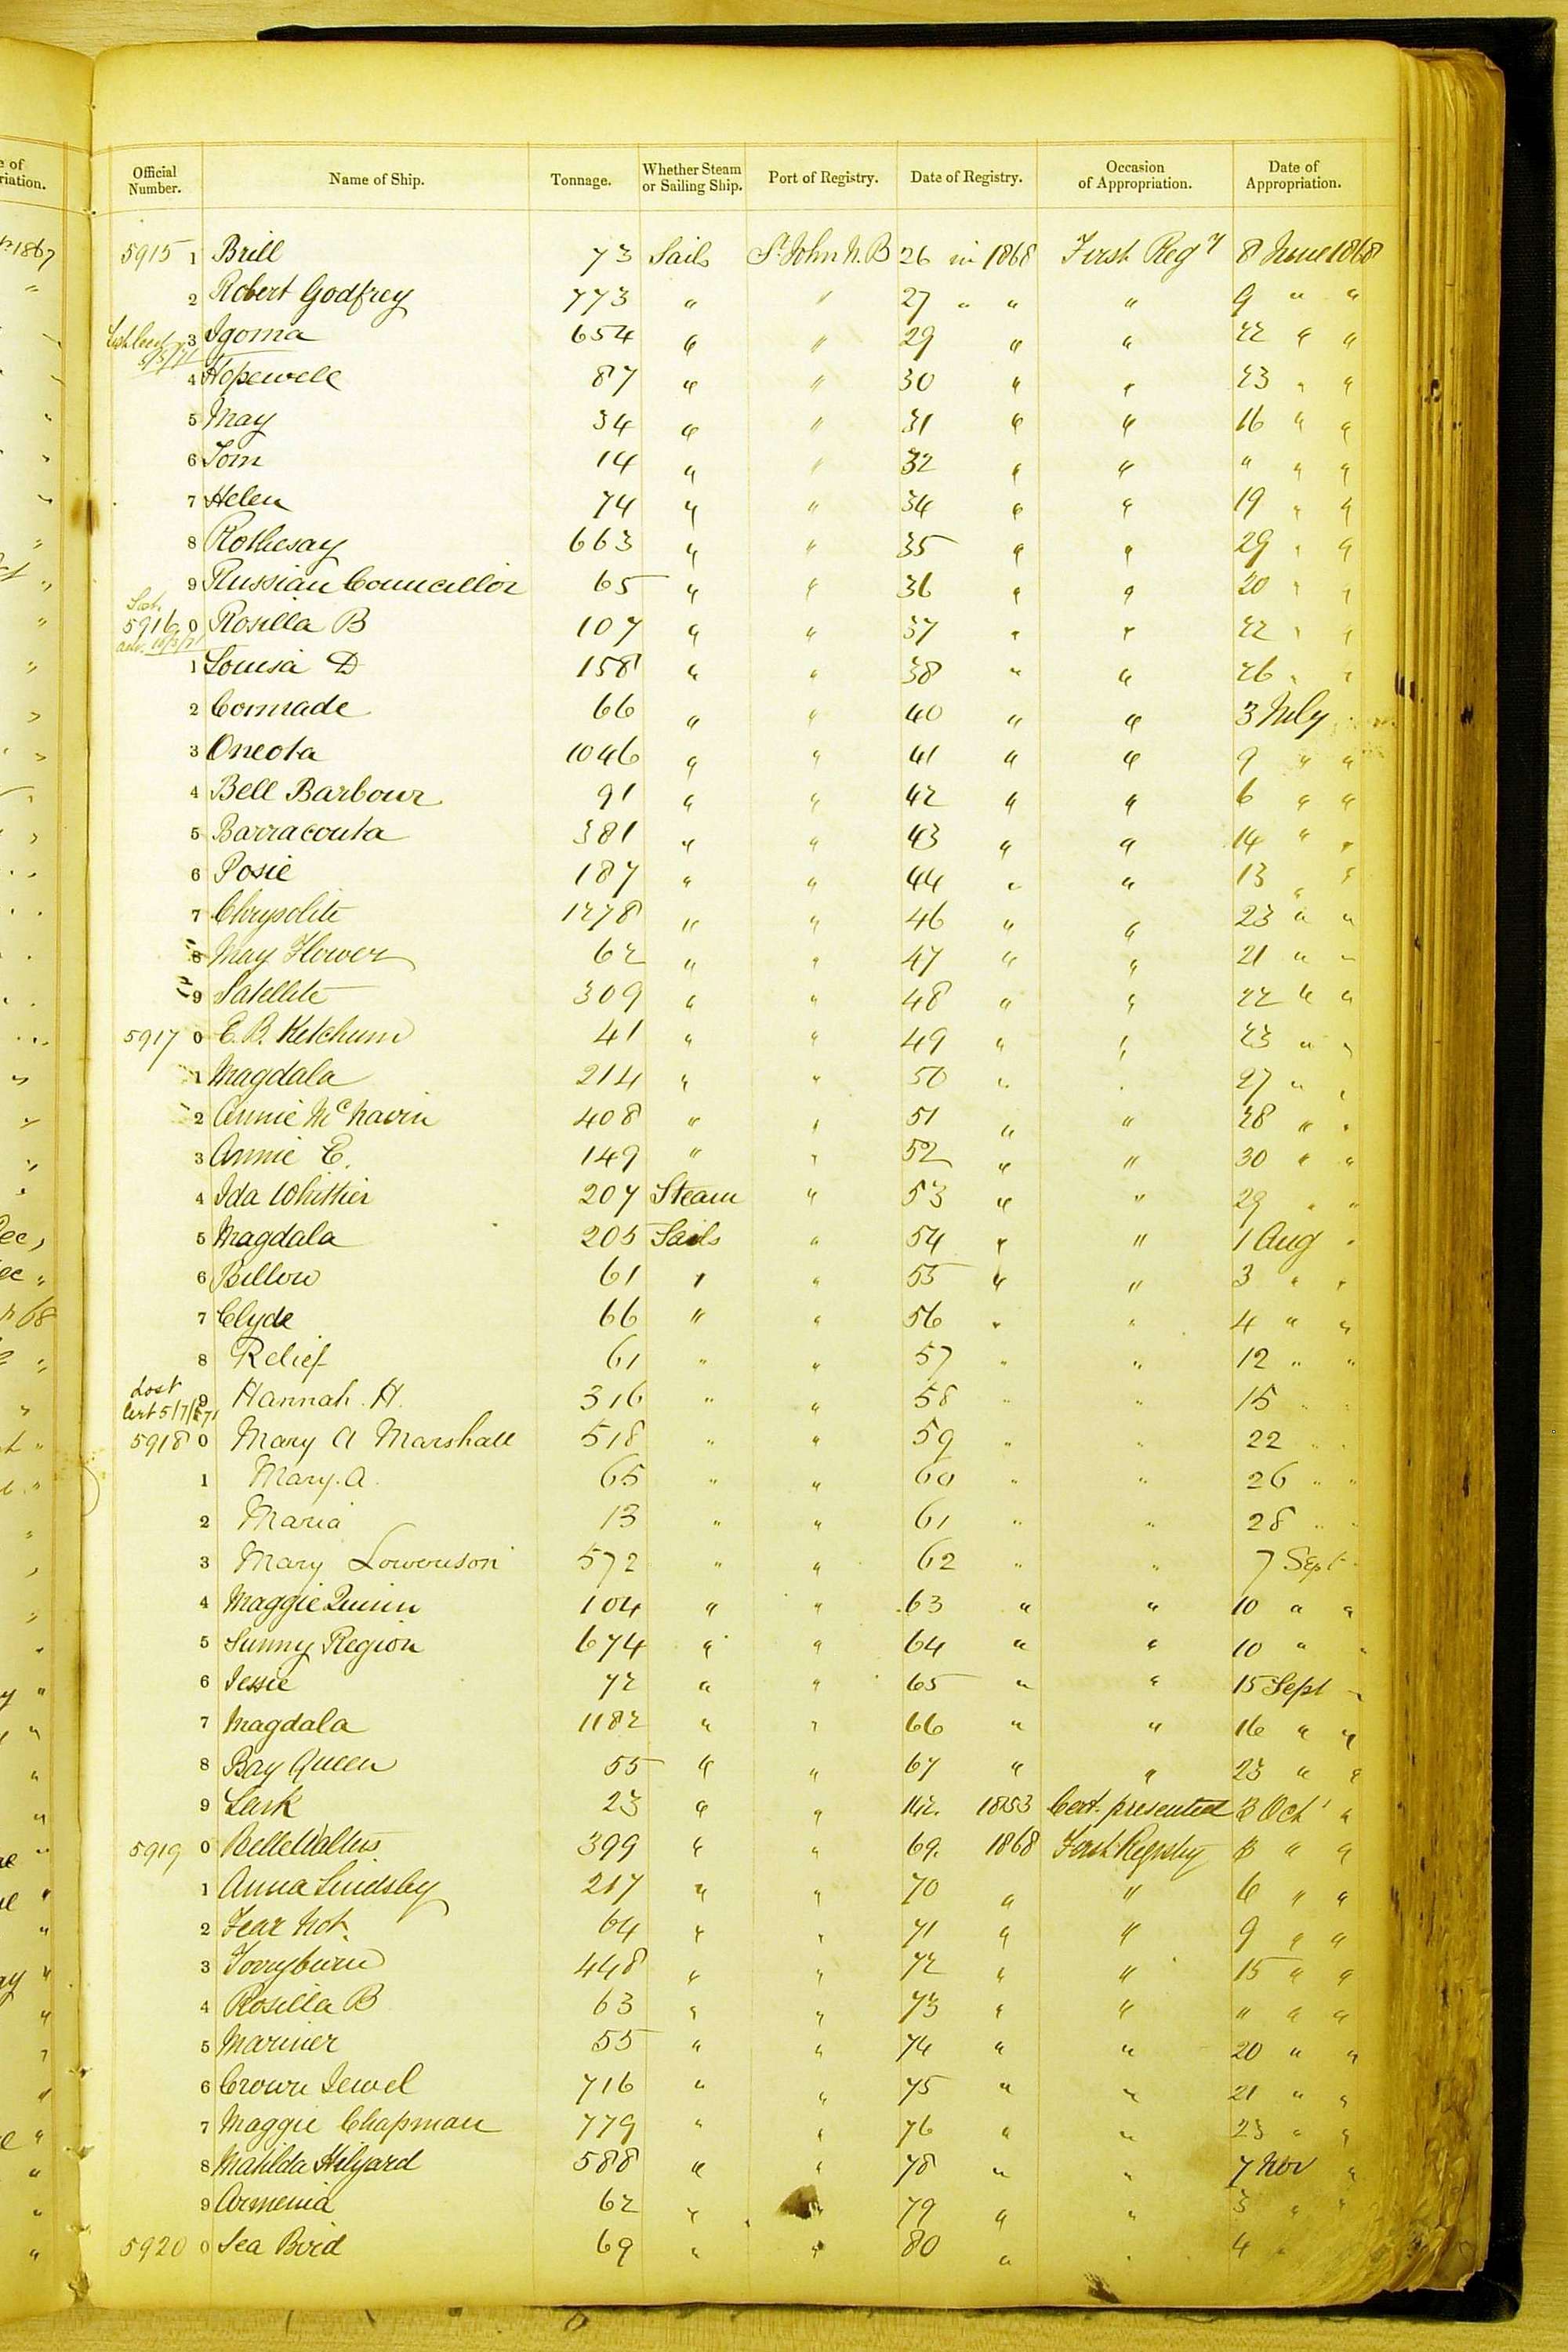 Official Number. Name of Ship. Tonnage. Whether Steam or Sailing Ship. Port of Registry. Date of Registry. Occasion of Appropriation. Date of Appropriation.
5915 1 Brill 73 Sails St John N.B 26 in 1868 First Regy 8 June 1868
2 Robert Godfrey 773 " " 27 " " " 9 " "
3 Igoma 654 " " 29 " " 22 " "
4 Hopewell 87 " " 30 " " 23 " "
5 May 34 " " 31 " " 16 " "
6 Tom 14 " " 32 " " " " "
7 Helen 74 " " 34 " " 19 " "
8 Rothesay 663 " " 35 " " 29 " "
9 Russian Councillor 65 " " 36 " " 20 " "
5916 0 Rosilla B 107 " " 37 " " 22 " "
1 Louisa D 158 " " 38 " " 26 " "
2 Comrade 66 " " 40 " " 3 July
3 Oneota 1046 " " 41 " " 9 " "
4 Bell Barbour 91 " " 42 " " 6 " "
5 Barracouta 381 " " 43 " " 14 " "
6 Posie 187 " " 44 " " 13 " "
7 Chrysolite 1278 " " 46 " " 23 " "
8 May Flower 62 " " 47 " " 21 " "
9 Satellite 309 " " 48 " " 22 " "
5917 0 E. B. Ketchum 41 " " 49 " " 23 " "
1 Magdala 214 " " 50 " " 27 " "
2 Annie McNavin 408 " " 51 " " 28 " "
3 Annie E. 149 " " 52 " " 30 " "
4 Ida Whittier 207 Steam " 53 " " 29 " "
5 Magdala 205 Sails " 54 " " 1 Aug "
6 Billow 61 " " 55 " " 3 " "
7 Clyde 66 " " 56 " " 4 " "
8 Relief 61 " " 57 " " 12 " "
Lost
Cert 5/7/71 9 Hannah. H. 316 " " 58 " " 15 " "
5918 0 Mary A Marshall 518 " " 59 " " 22 " "
1 Mary. A. 65 " " 60 " " 26 " "
2 Maria 13 " " 61 " " 28 " "
3 Mary Lowerison 572 " " 62 " " 7 Sept "
4 Maggie Quinn 104 " " 63 " " 10 " "
5 Sunny Region 674 " " 64 " " 10 " "
6 Jessie 72 " " 65 " " 15 Sept "
7 Magdala 1182 " " 66 " " 16 " "
8 Bay Queen 55 " " 67 " " 23 " "
9 Lark 23 " " 142. 1853 Cert. presented 3 Oct "
5919 0 Belle Walters 399 " " 69. 1868 First Registry 8 " "
1 Anna Lindsley 217 " " 70 " " 6 " "
2 Fear Not. 64 " " 71 " " 9 " "
3 Torryburn 448 " " 72 " " 15 " "
4 Rosilla B 63 " " 73 " " " " "
5 Mariner 55 " " 74 " " 20 " "
6 Crown Jewel 716 " " 75 " " 21 " "
7 Maggie Chapman 779 " " 76 " " 23 " "
8 Matilda Hilyard 588 " " 78 " " 7 Nov "
9 Armenia 62 " " 79 " " 3 " "
5920 0 Sea Bird 69 " " 80 " " 4 "